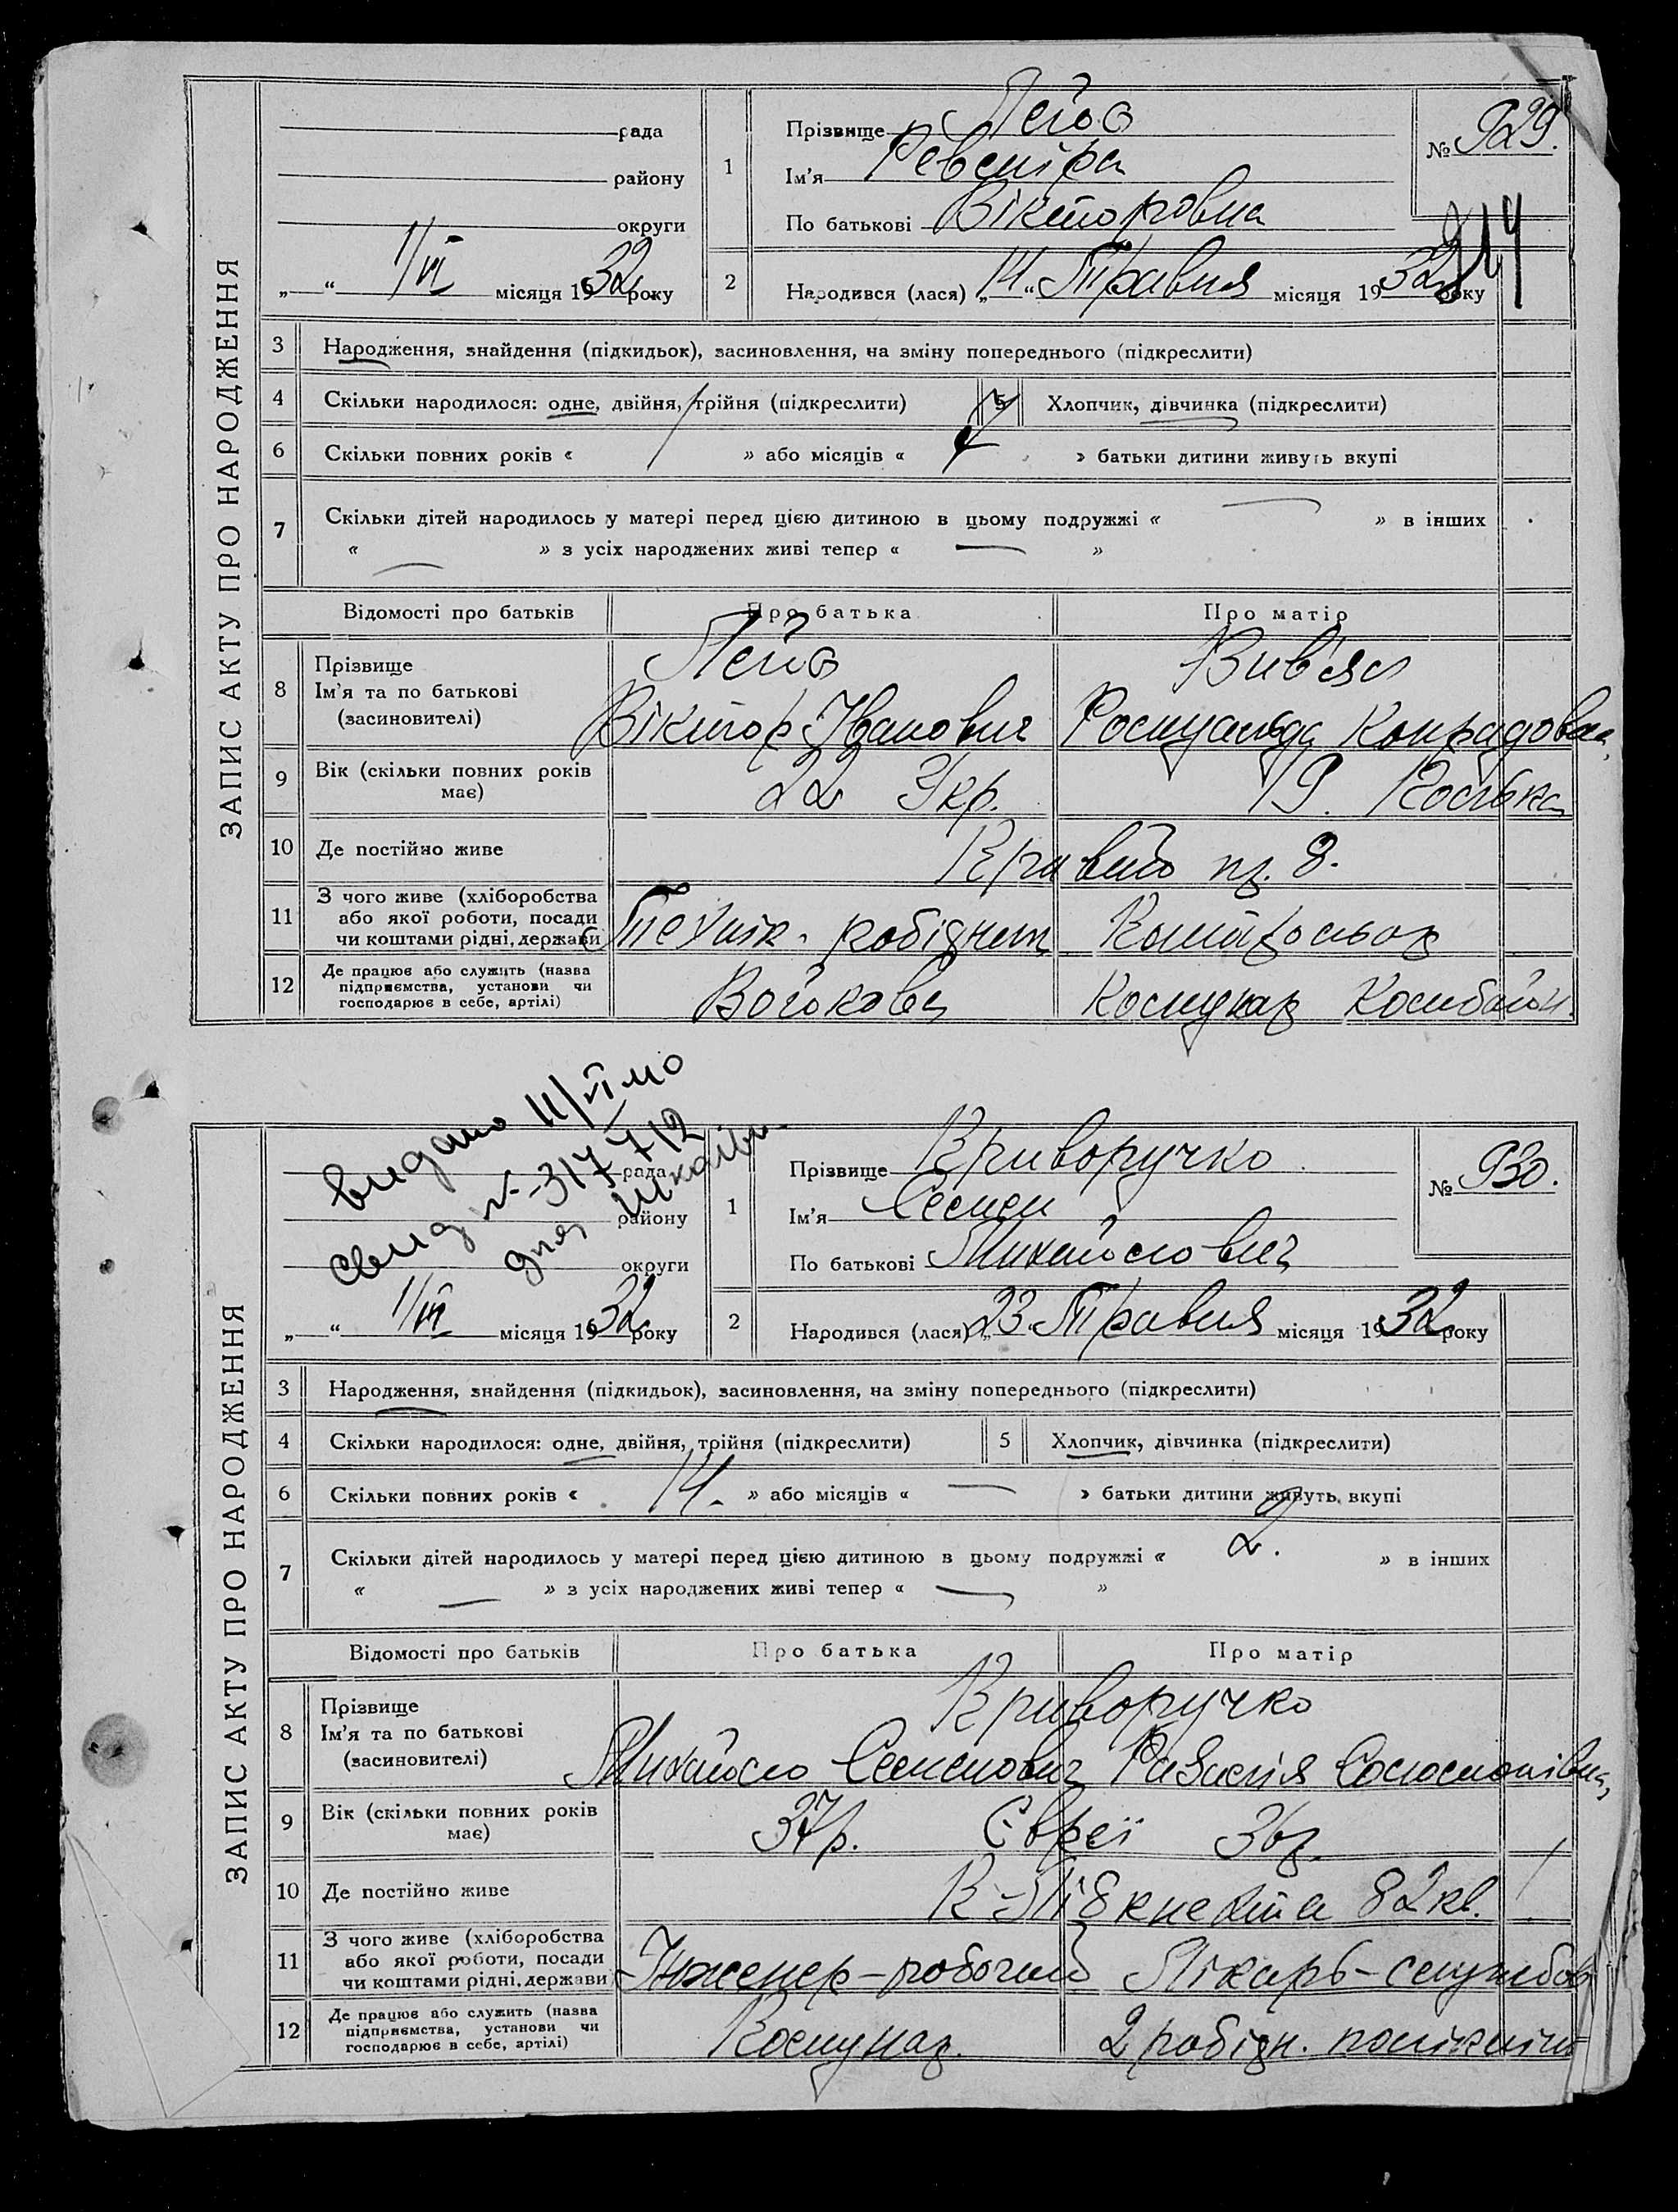 ЗАПИС АКТУ ПРО НАРОДЖЕННЯ
рада
району
округи
„ “ 1/VI місяця 1932 року
1
Прізвище
Ім'я
По батькові Вікторовна
№ 929.
2
Народився (лася) „14“ Травня місяця 1932 року
3 Народження, знайдення (підкидьок), засиновлення, на зміну попереднього (підкреслити)
4 Скільки народилося: одне, двійня, трійня (підкреслити) 5 Хлопчик, дівчинка (підкреслити)
6 Скільки повних років « » або місяців « » батьки дитини живуть вкупі
7 Скільки дітей народилось у матері перед цією дитиною в цьому подружжі « — » в інших
« — » з усіх народжених живі тепер « — »
Відомості про батьків Про батька Про матір
8 Прізвище
Ім'я та по батькові
(засиновителі)
Віктор Іванович Ромуальда Конрадовна
9 Вік (скільки повних років має) 22 Укр. 19. Полька
10 Де постійно живе
11 З чого живе (хліборобства або якої роботи, посади чи коштами рідні, держави) Технік - робітн
12 Де працює або служить (назва підприємства, установи чи господарює в себе, артілі) Комунар Комбайн.
ЗАПИС АКТУ ПРО НАРОДЖЕННЯ
видано 11/VI
свид № 317712
для школи
рада
району
округи
„ “ 1/VI місяця 1932 року
1
Прізвище Криворучко
Ім'я Семен
По батькові Михайлович
№ 930.
2
Народився (лася) 23 Травня місяця 1932 року
3 Народження, знайдення (підкидьок), засиновлення, на зміну попереднього (підкреслити)
4 Скільки народилося: одне, двійня, трійня (підкреслити) 5 Хлопчик, дівчинка (підкреслити)
6 Скільки повних років « 14. » або місяців « — » батьки дитини живуть вкупі
7 Скільки дітей народилось у матері перед цією дитиною в цьому подружжі « 2. » в інших
« — » з усіх народжених живі тепер « — »
Відомості про батьків Про батька Про матір
8 Прізвище Криворучко
Ім'я та по батькові
(засиновителі)
Михайло Семенович Соломонівна
9 Вік (скільки повних років має) 37р. Євреї 36р.
10 Де постійно живе К-Лібкнехта 82 кв. 1
11 З чого живе (хліборобства або якої роботи, посади чи коштами рідні, держави) Інженер - робочий Лікарь - службов
12 Де працює або служить (назва підприємства, установи чи господарює в себе, артілі) Комунар. 2 робідн. поліклін